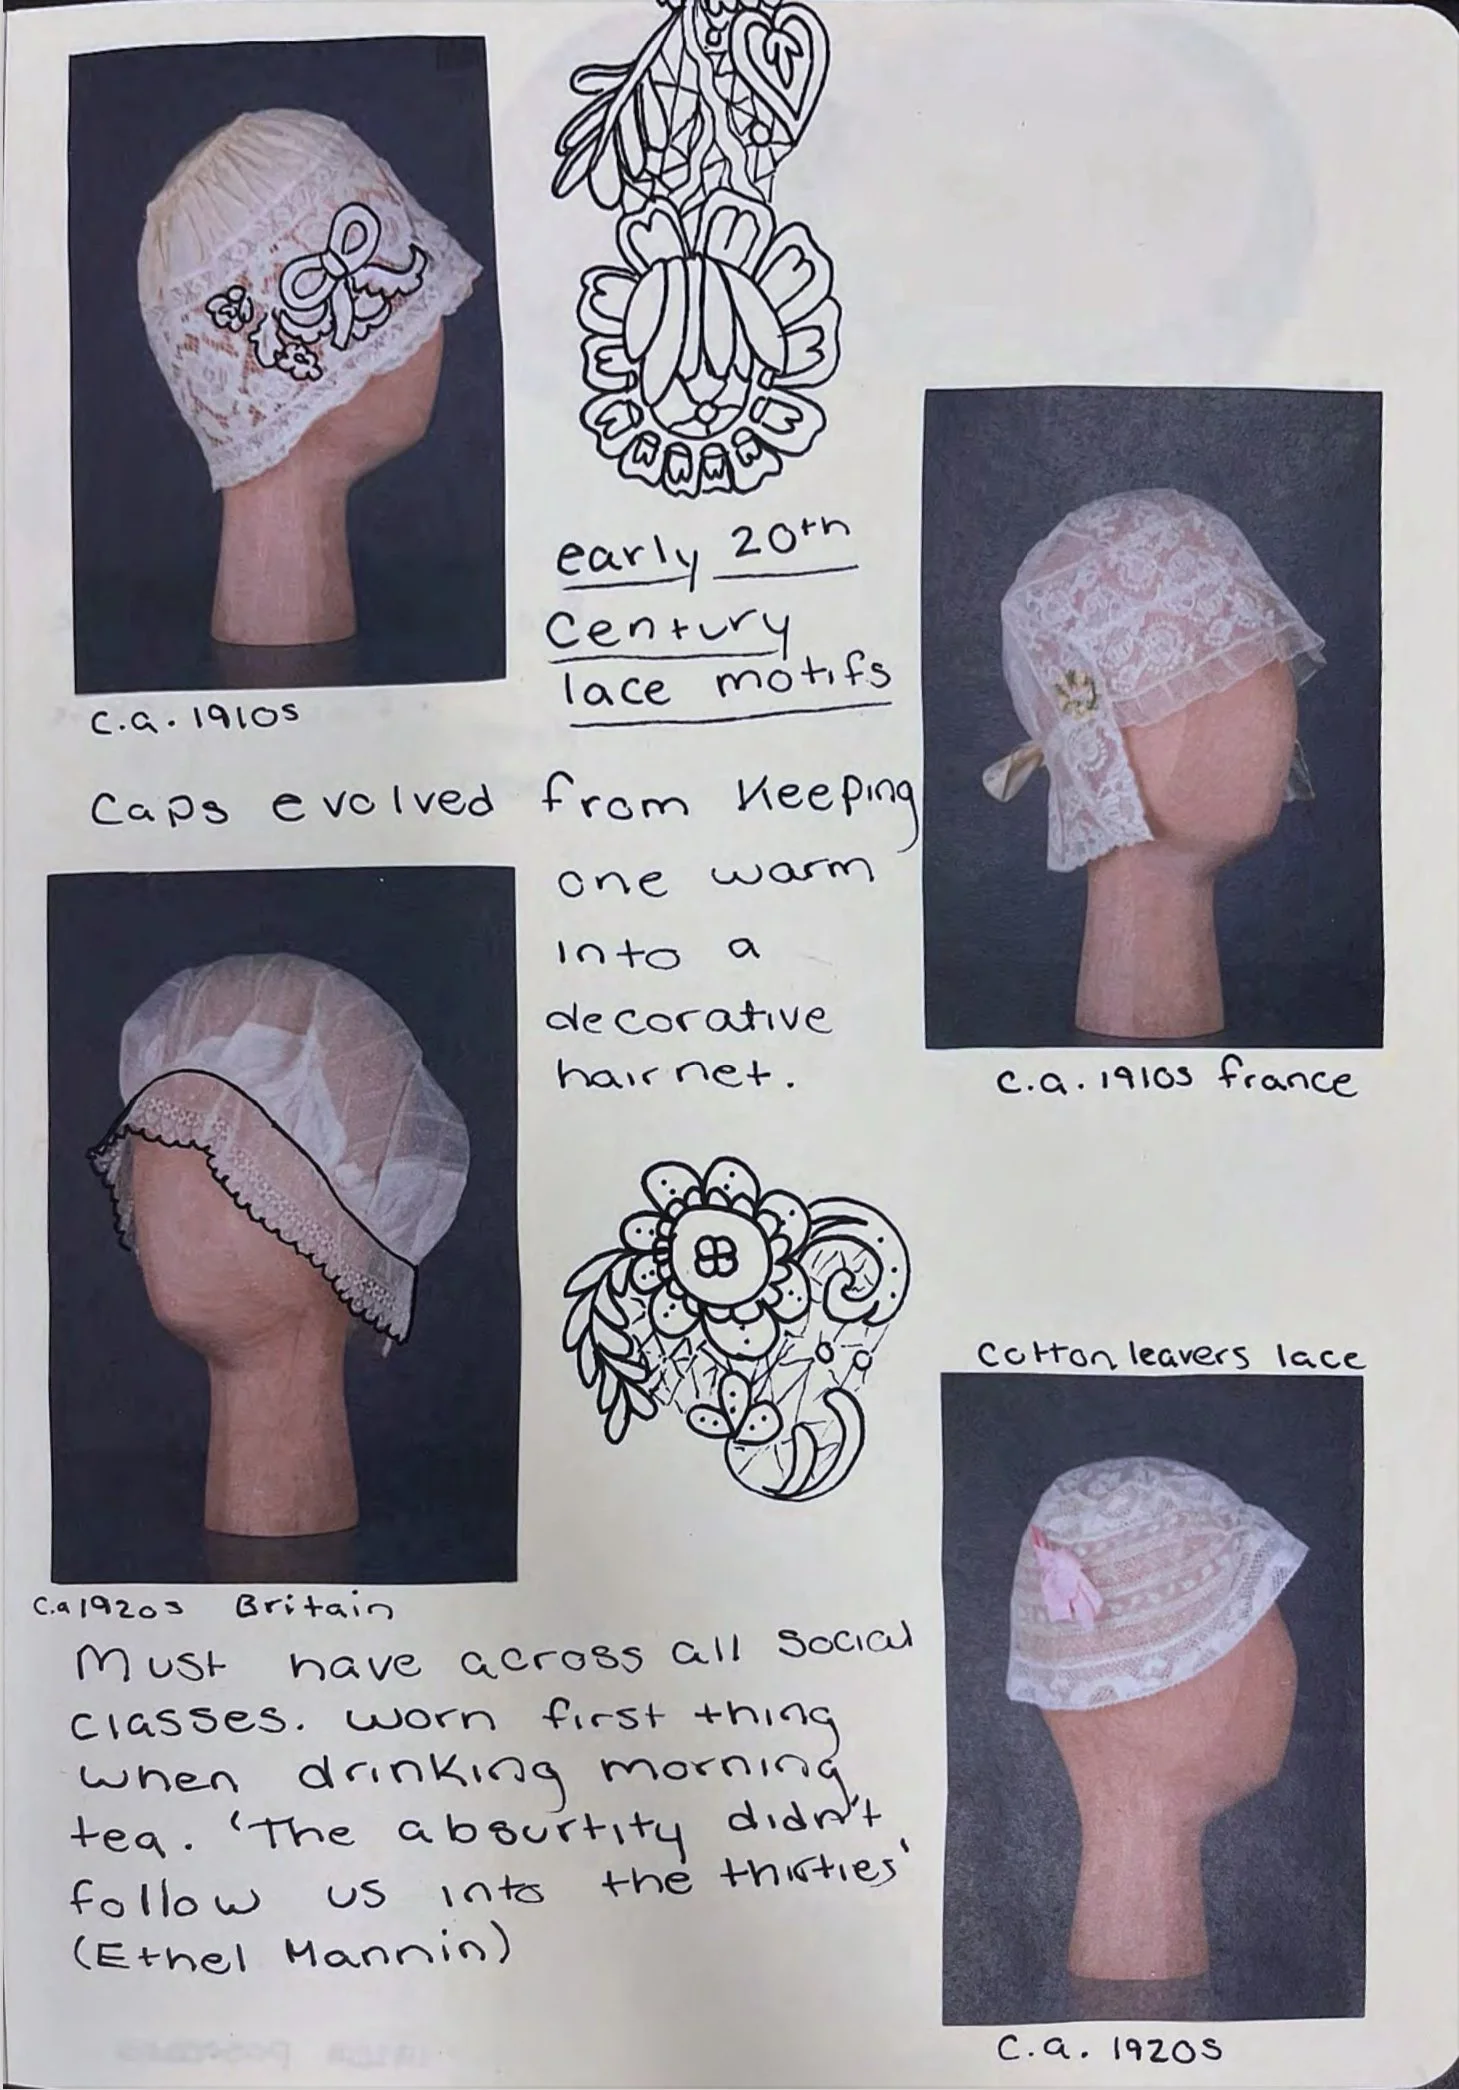 early 20th
Century
lace motifs
c.a. 1910s
Caps evolved from Keeping
one warm
into a
decorative
hairnet.
c.a. 1910s france
Cotton leavers lace
c.a 1920s Britain
Must have across all social
classes. worn first thing
when drinking morning
tea. 'The absurtity didn't
follow us into the thirties'
(Ethel Mannin)
c.a. 1920s